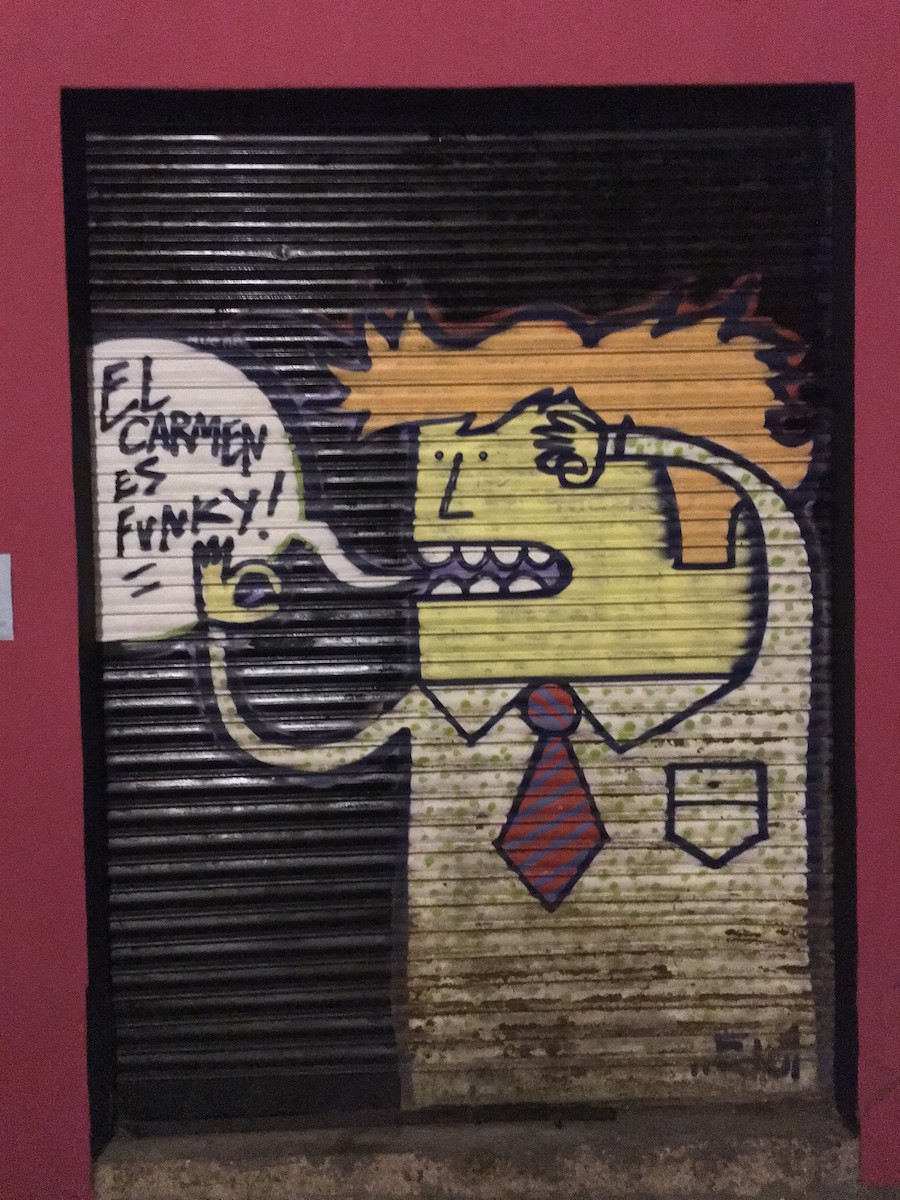 EL
CARMEN
ES
FUNKY!